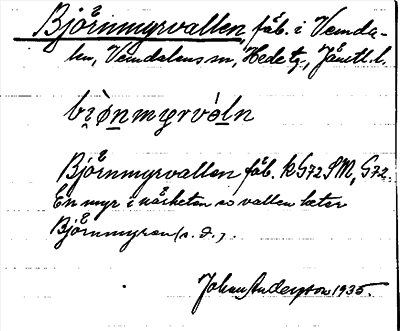 Björnmyrvallen, fäb. i Vemda-
len, Vemdalens sn, Hede tg, Jämtl. l.
Björnmyrvallen fäb. k G72 SM, G72.
En myr i närheten av vallen heter
Björnmyren (s. d.).
Johan Anderson 1935.